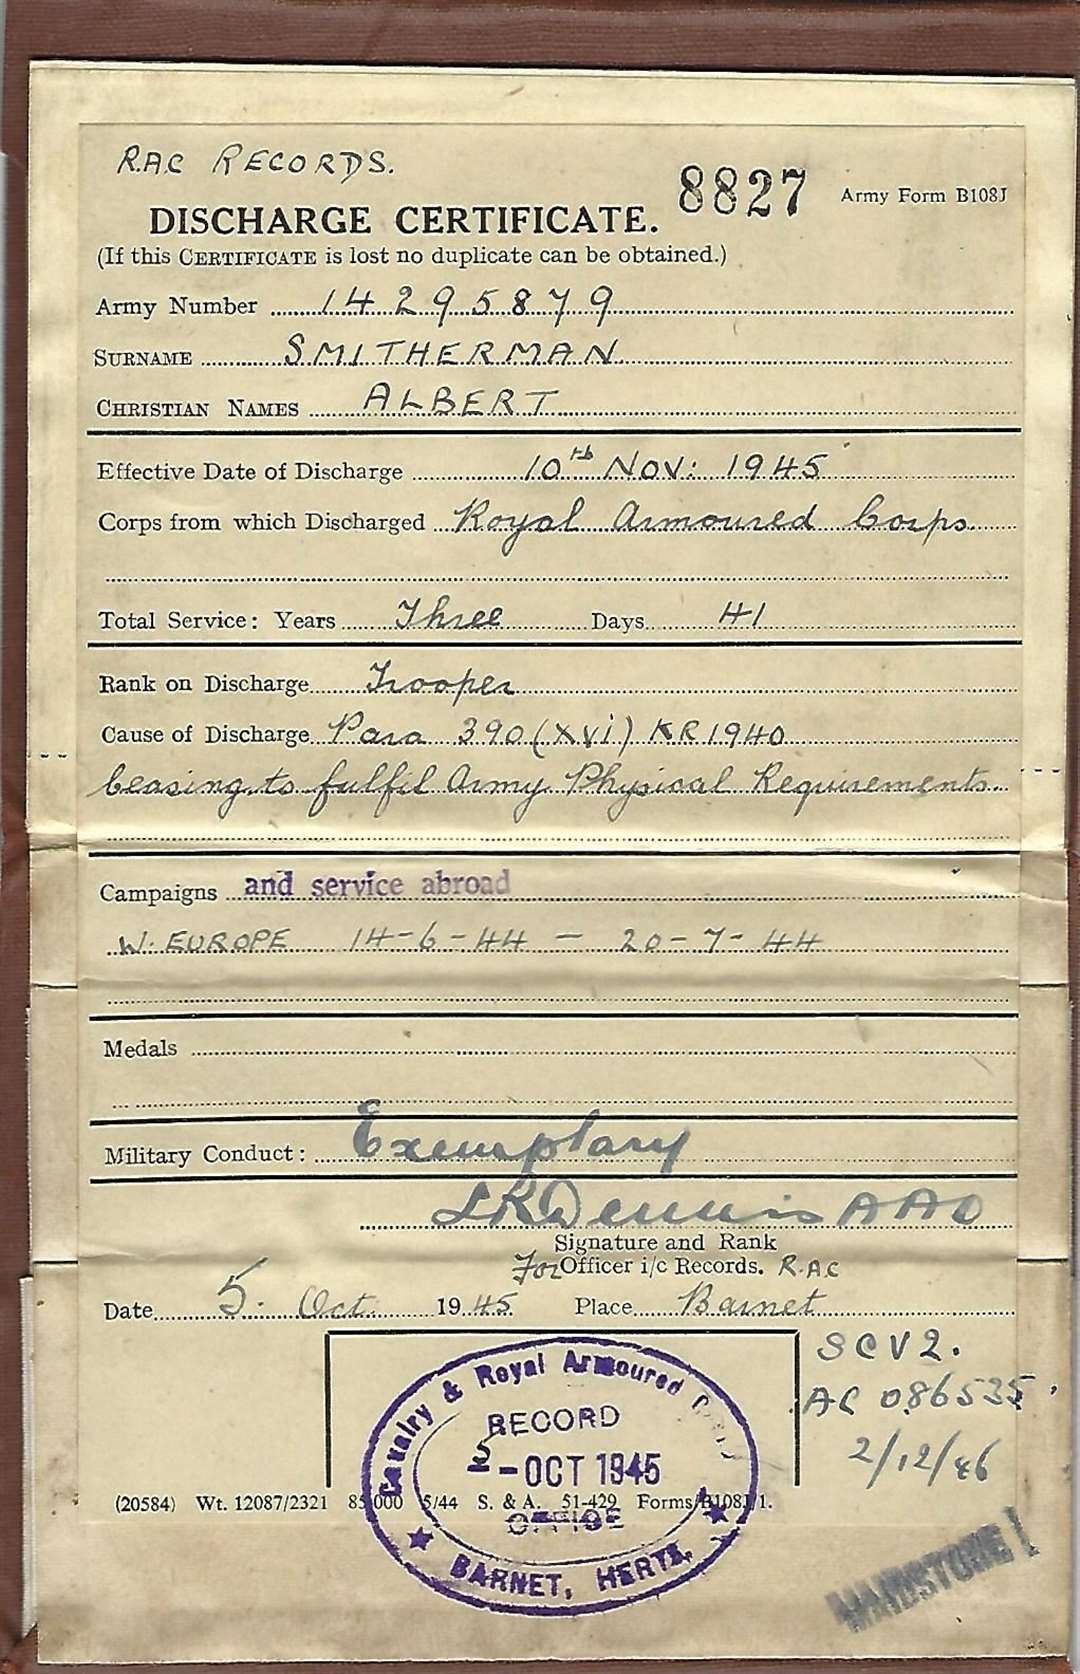 R.A.C RECORDS.
8827
Army Form B108J
DISCHARGE CERTIFICATE.
(If this CERTIFICATE is lost no duplicate can be obtained.)
Army Number 14295879
SURNAME SMITHERMAN
CHRISTIAN NAMES ALBERT
Effective Date of Discharge 10th NOV: 1945
Corps from which Discharged Royal Armoured Corps.
Total Service: Years Three Days 41
Rank on Discharge Trooper
Cause of Discharge Para 390 (xvi) KR 1940
Ceasing to fulfil Army Physical Requirements.
Campaigns and service abroad
W. EUROPE 14-6-44 - 20-7-44
Medals
Military Conduct: Exemplary
Dennis
Signature and Rank
For Officer i/c Records. R.A.C
Date 5. Oct. 1945 Place Barnet
SCV2.
AC 086535.
2/12/46
Cavalry & Royal Armoured
RECORD
5-OCT 1945
OFFICE
BARNET, HERTS.
(20584) Wt. 12087/2321 85,000 5/44 S. & A. 51-429 Forms/B108J/1.
MAIDSTONE 1